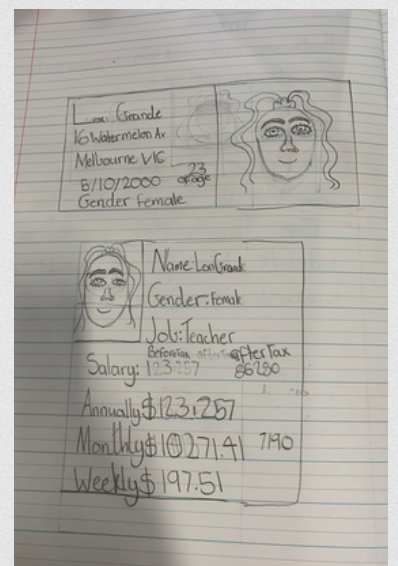 Grande
16 Watermelon Av
Melbourne VIC
23
5/10/2000 of age
Gender Female
Name: Lexi Grande
Gender: Female
Job: Teacher
Before tax after tax
Salary: 123,257 86280
Annually $123,257
Monthly $10271.41 7190
Weekly $197.51